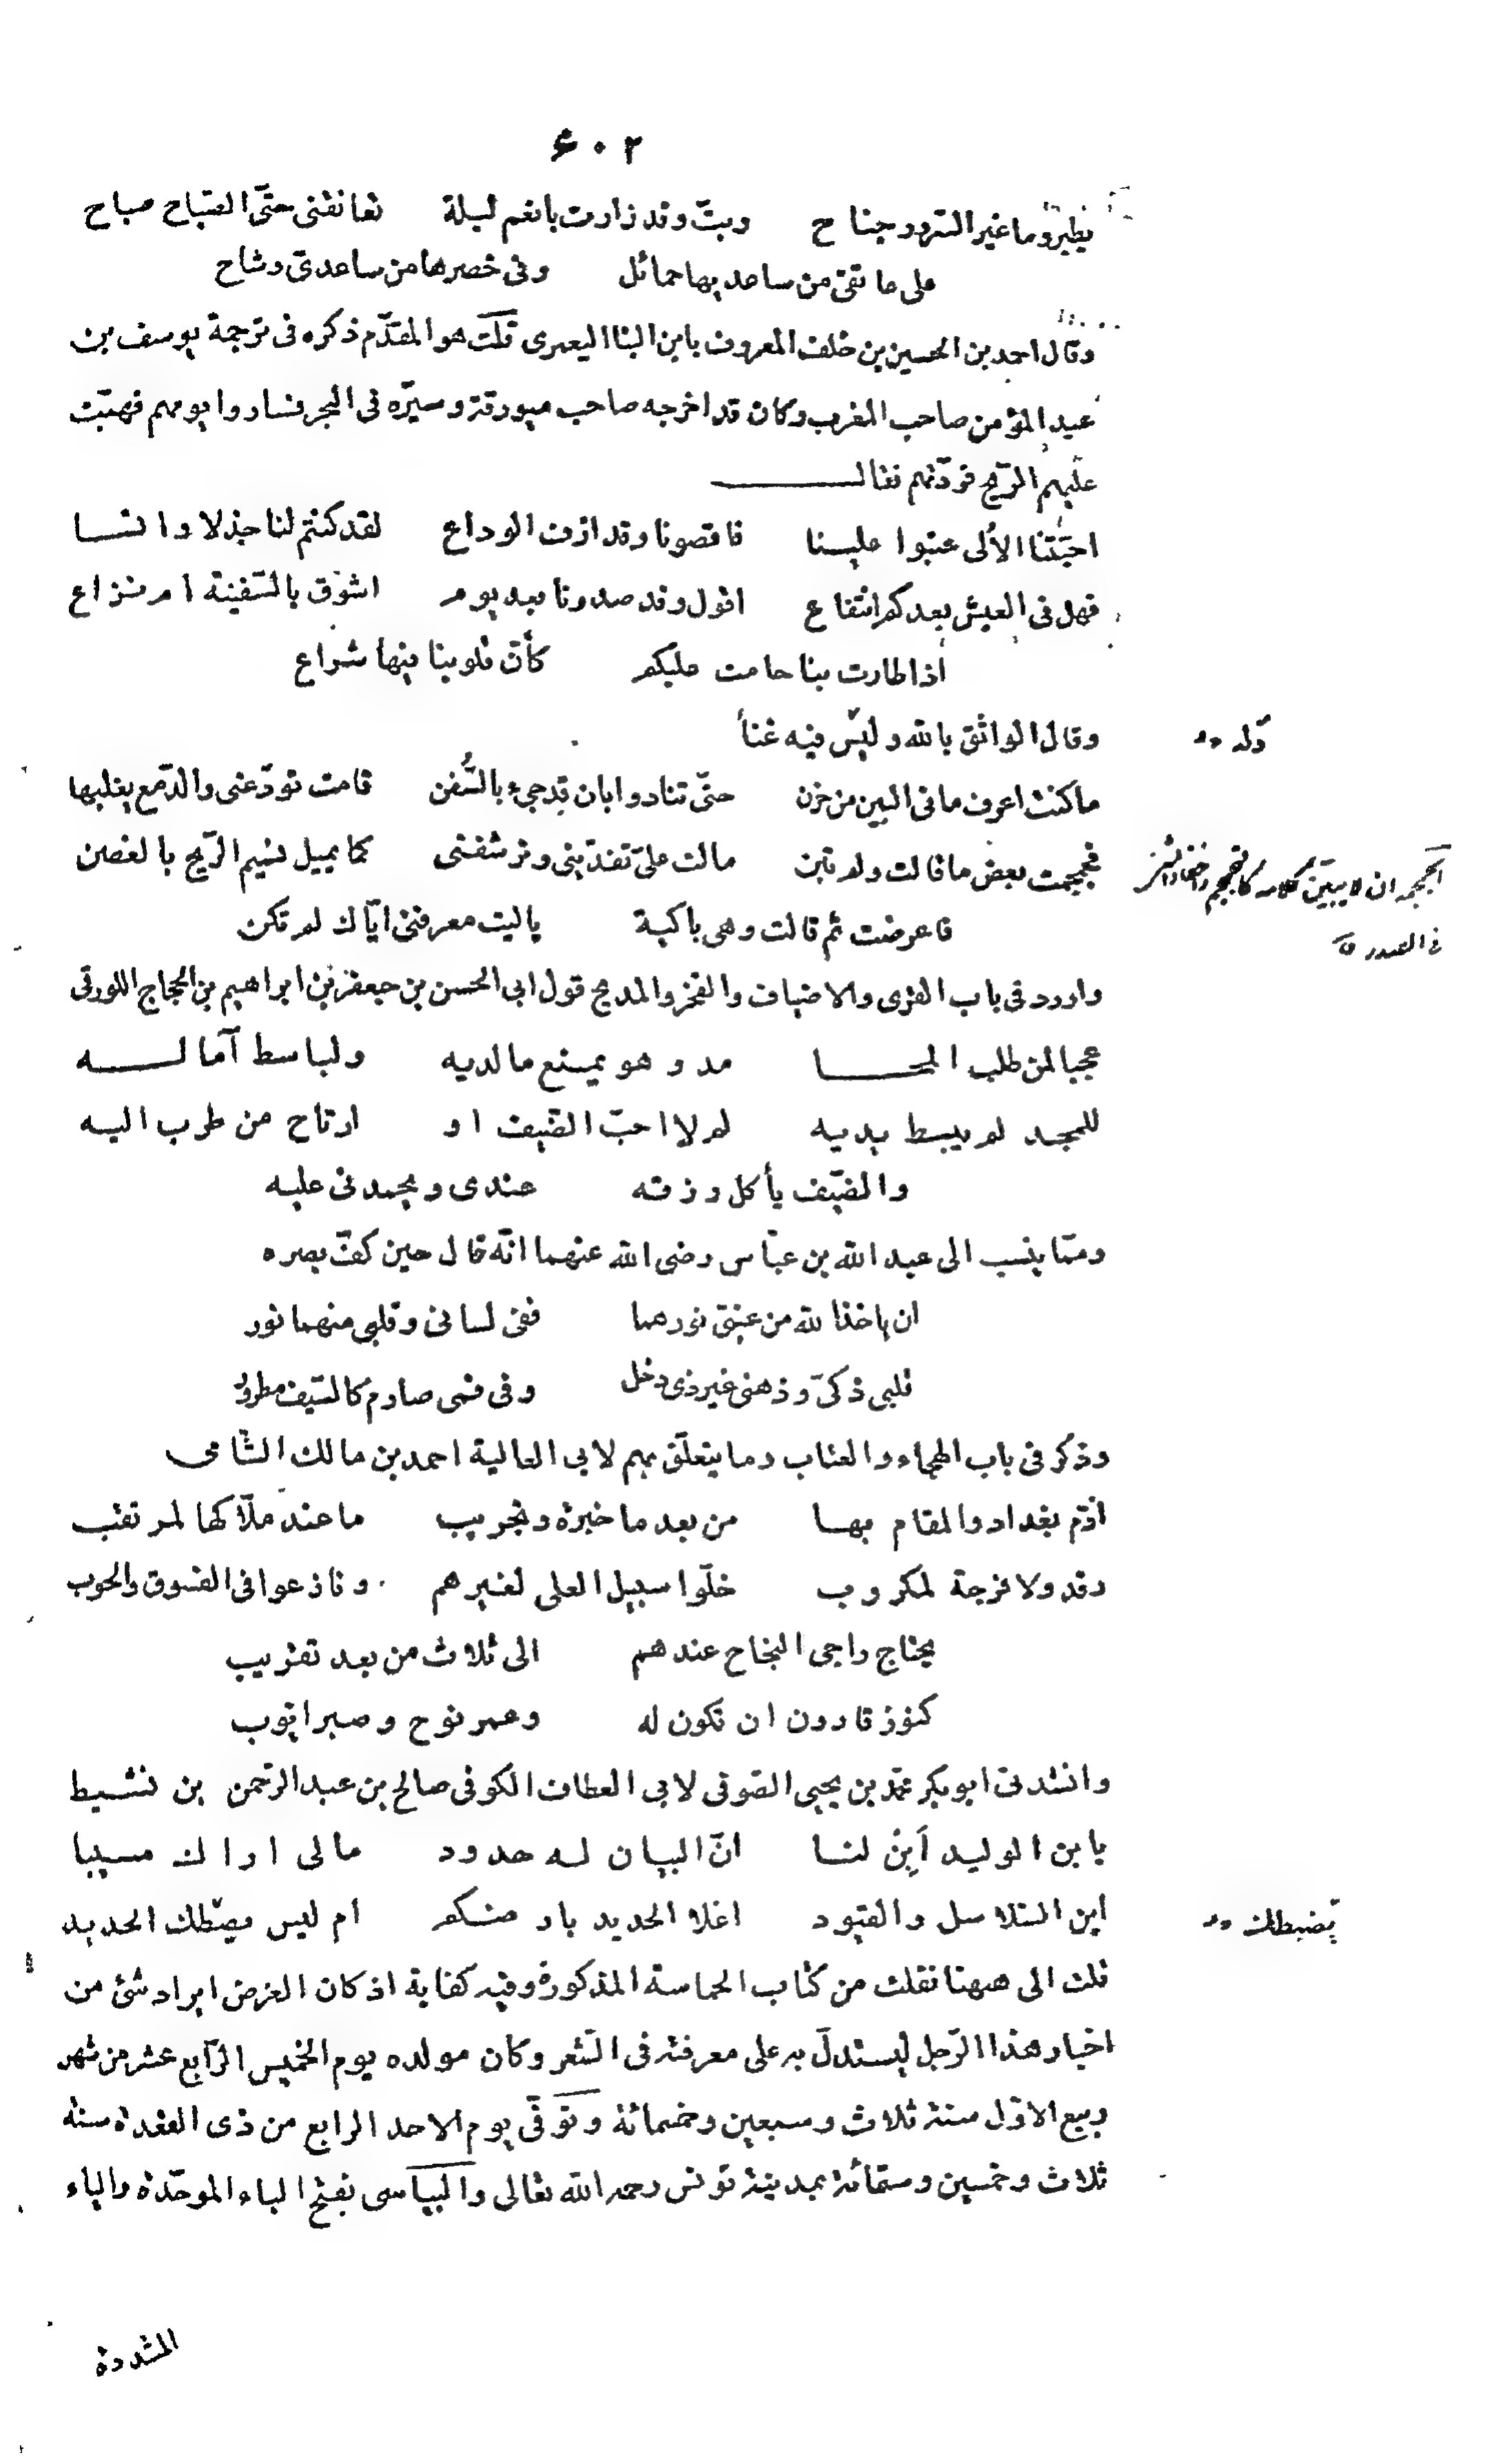 ۶۰۲
يطير وما غير السرور جناح وبتّ وقد زارت بانعم ليلة تعانقنى حتّى الصّباح صباح
على عاتقى من ساعديها حمائل وفى خصرها من ساعدىّ وشاح
وقال احمد بن الحسين بن خلف المعروف بابن البنا اليعمرى قلت هو المقدّم ذكره فى ترجمة يوسف بن
عبد المؤمن صاحب المغرب وكان قد اخرجه صاحب ميورقة وسيّره فى البحر فساروا يومهم فهبّت
عليهم الرّيح فردّتهم فقال
احبّتنا الألى عتبوا علينا فاقصونا وقد ازف الوداع لقد كنتم لنا جذلا وانسا
فهل فى العيش بعدكم انتفاع اقول وقد صدرنا بعد يوم اشوق بالسّفينة ام نزاع
اذا طارت بنا حامت عليكم كأنّ قلوبنا فيها شراع
وقال الواثق بالله وليس فيه غناً
وله
ما كنت اعرف ما فى البين من حزن حتّى تنادوا بان قد جىء بالسُّفن قامت تودّعنى والدّمع يغلبها
فجمجمت بعض ما قالت ولم تبن مالت علىّ تفدّينى وترشفنى كما يميل نسيم الرّيح بالغصن
الجمجمه ان لا يبيّن كلامه كالتجمجم واخفاء الشئ
فى الصدر ق
فاعرضت ثم قالت وهى باكية ياليت معرفتى ايّاك لم تكن
واورد فى باب القرى والاضياف والفخر والمديح قول ابى الحسن بن جعفر بن ابراهيم بن الحجاج اللورقى
عجبا لمن طلب المحا مد وهو يمنع ما لديه ولباسط آماله
للمجد لم يبسط يديه لم لا احبّ الضّيف او ارتاح من طرب اليه
والضّيف يأكل رزقه عندى ويحمدنى عليه
وممّا ينسب الى عبد الله بن عبّاس رضى الله عنهما انّه قال حين كفّ بصره
ان ياخذ الله من عينىّ نورهما ففى لسانى وقلبى منهما نور
قلبى ذكىّ وذهنى غير ذى دخل وفى فمى صارم كالسّيف مطرور
وذكر فى باب الهجاء والعتاب وما يتعلّق بهم لابى العالية احمد بن مالك الشّامى
اذمّ بغداد والمقام بها من بعد ما خبرة وتجريب ما عند ملّاكها لمرتقب
رفد ولا فرجة لمكروب خلّوا سبيل العلى لغيرهم ونازعوا فى الفسوق والحوب
يحتاج راجى النجاح عندهم الى ثلاث من بعد تقريب
كنوز قارون ان تكون له وعمر نوح وصبر ايّوب
وانشدنى ابو بكر محمّد بن يحيى الصّوفى لابى العطاف الكوفى صالح بن عبد الرّحمن بن نشيط
يا بن الوليد اَبِنْ لنا انّ البيان له حدود مالى اراك مسيبا
اين السّلاسل والقيود اغلا الحديد بارضكم ام ليس يضبطك الحديد
يضبطك
قلت الى ههنا نقلت من كتاب الحماسة المذكورة وفيه كفاية اذ كان الغرض ايراد شئ من
اخبار هذا الرّجل ليستدلّ به على معرفته فى الشّعر وكان مولده يوم الخميس الرّابع عشر من شهر
ربيع الاوّل سنة ثلاث وسبعين وخمسمائة وتوفّى يوم الاحد الرابع من ذى القعدة سنة
ثلاث وخمسين وستّمائة بمدينة تونس رحمه الله تعالى والبيّاسى بفتح الباء الموحّدة والياء
المشددة